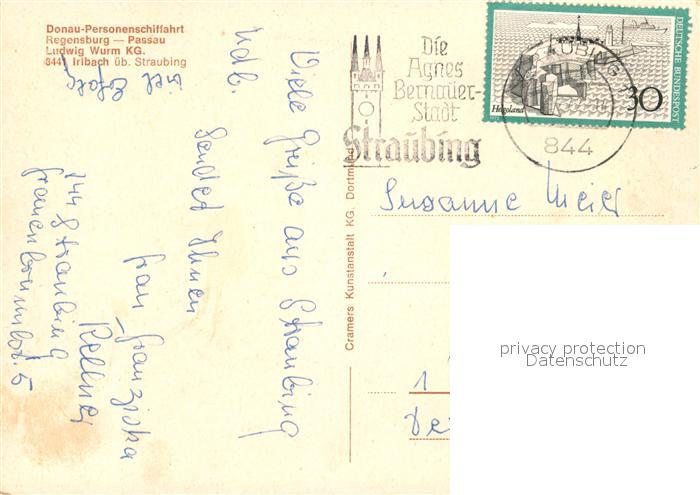 Donau-Personenschiffahrt
Regensburg — Passau
Ludwig Wurm KG.
8441 Irlbach üb. Straubing
Viele Grüße aus Straubing
Ndb.
Sendet Ihnen
Frau Franziska
Kellner
844 Straubing
Frauenbrünnlstr. 5
viel
Erfolg
Cramers Kunstanstalt KG. Dortmund
Die
Agnes
Bernauer-
Stadt
Straubing
STRAUBING
844
DEUTSCHE BUNDESPOST
Helgoland
30
Susanne Meier
1
privacy protection
Datenschutz